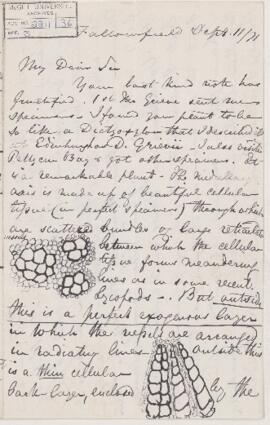 Fallowfield Sept 11/71
My Dear Sir
Your last kind note has
gratified. 1st Mr Grieve sent me
specimens. I found your plant to be
so like a Dictyoxylon that I described it
at Edinburgh as D. Grievii. I also visited
Pettycur Bay & got other specimens. It
is a remarkable plant. The medullary
axis is made up of beautiful cellular
tissue (in perfect specimens) through which
are scattered bundles of large reticulated
between which the cellular
tissue forms meandering
lines as in some recent
Lycopods. But outside
this is a perfect exogenous layer
in which the vessels are arranged
in radiating lines. outside this
is a thin cellular
bark layer, enclosed by the